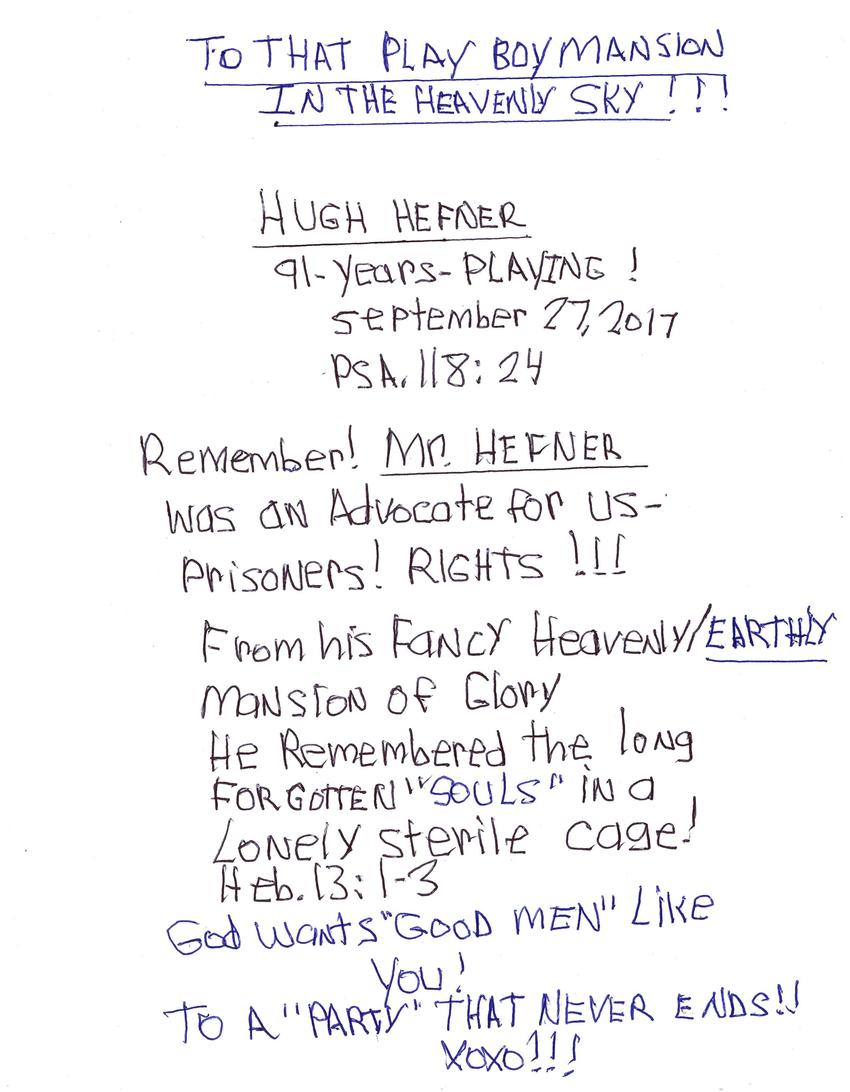 TO THAT PLAY BOY MANSION
IN THE HEAVENLY SKY !!!
HUGH HEFNER
91-years-PLAYING !
september 27, 2017
PSA. 118: 24
Remember! Mr. HEFNER
was an Advocate for us-
Prisoners! RIGHTS !!!
From his FANCY Heavenly/EARTHLY
Mansion of Glory
He Remembered the long
FORGOTTEN "SOULS" in a
Lonely sterile cage!
Heb. 13: 1-3
God wants "GOOD MEN" Like
You!
TO A "PARTY" THAT NEVER ENDS!!
XOXO!!!